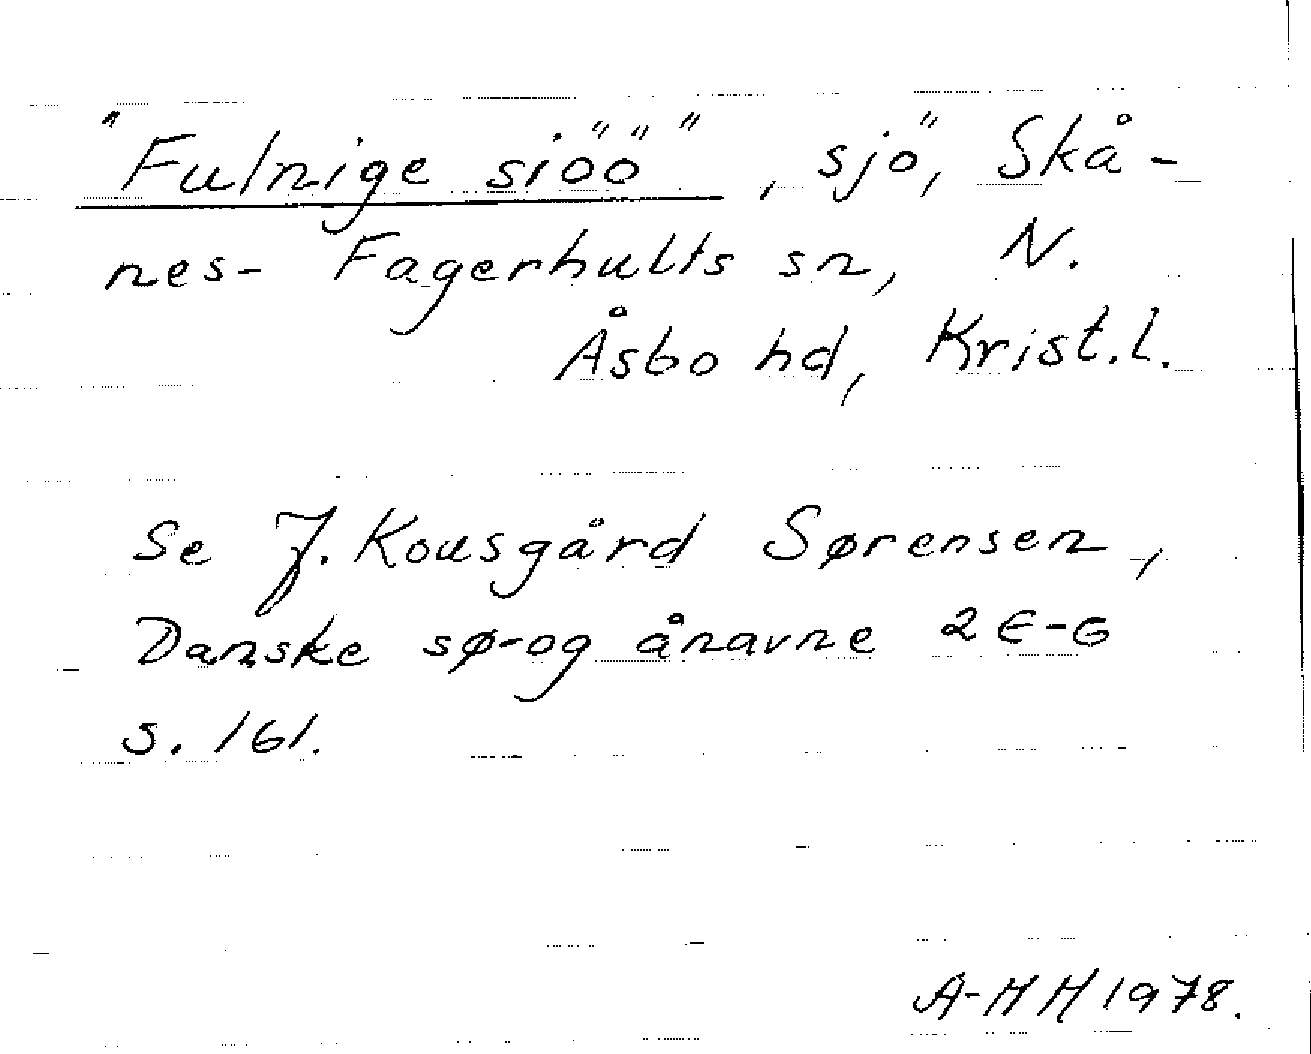 "Fulnige siöö", sjö, Skå-
nes- Fagerhults sn, N.
Åsbo hd, Krist.l.
Se J. Kousgård Sørensen,
Danske sø-og ånavne 2 E-G
s. 161.
A-HH 1978.